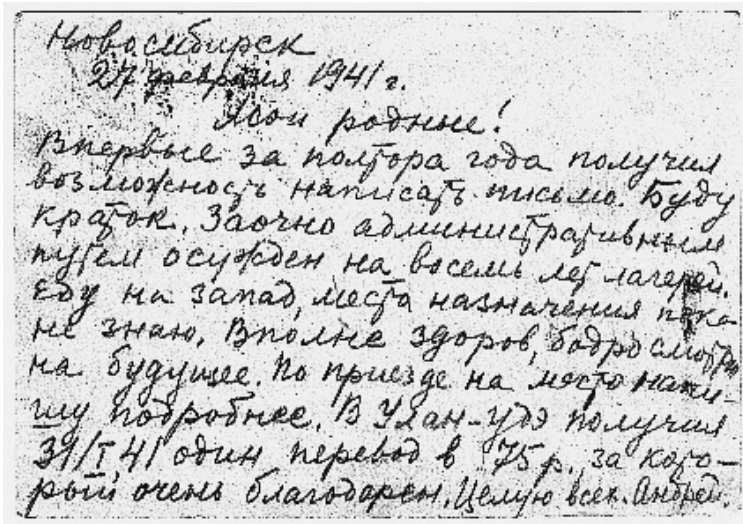 Новосибирск
27 февраля 1941 г.
Мои родные!
Впервые за полтора года получил
возможность написать письмо. Буду
краток. Заочно административным
путем осужден на восемь лет лагерей.
Еду на запад, места назначения пока
не знаю. Вполне здоров, бодро смотрю
на будущее. По приезде на место напи-
шу подробнее. В Улан-Удэ получил
31/I 41 один перевод в 75 р., за кото-
рый очень благодарен. Целую всех. Андрей.